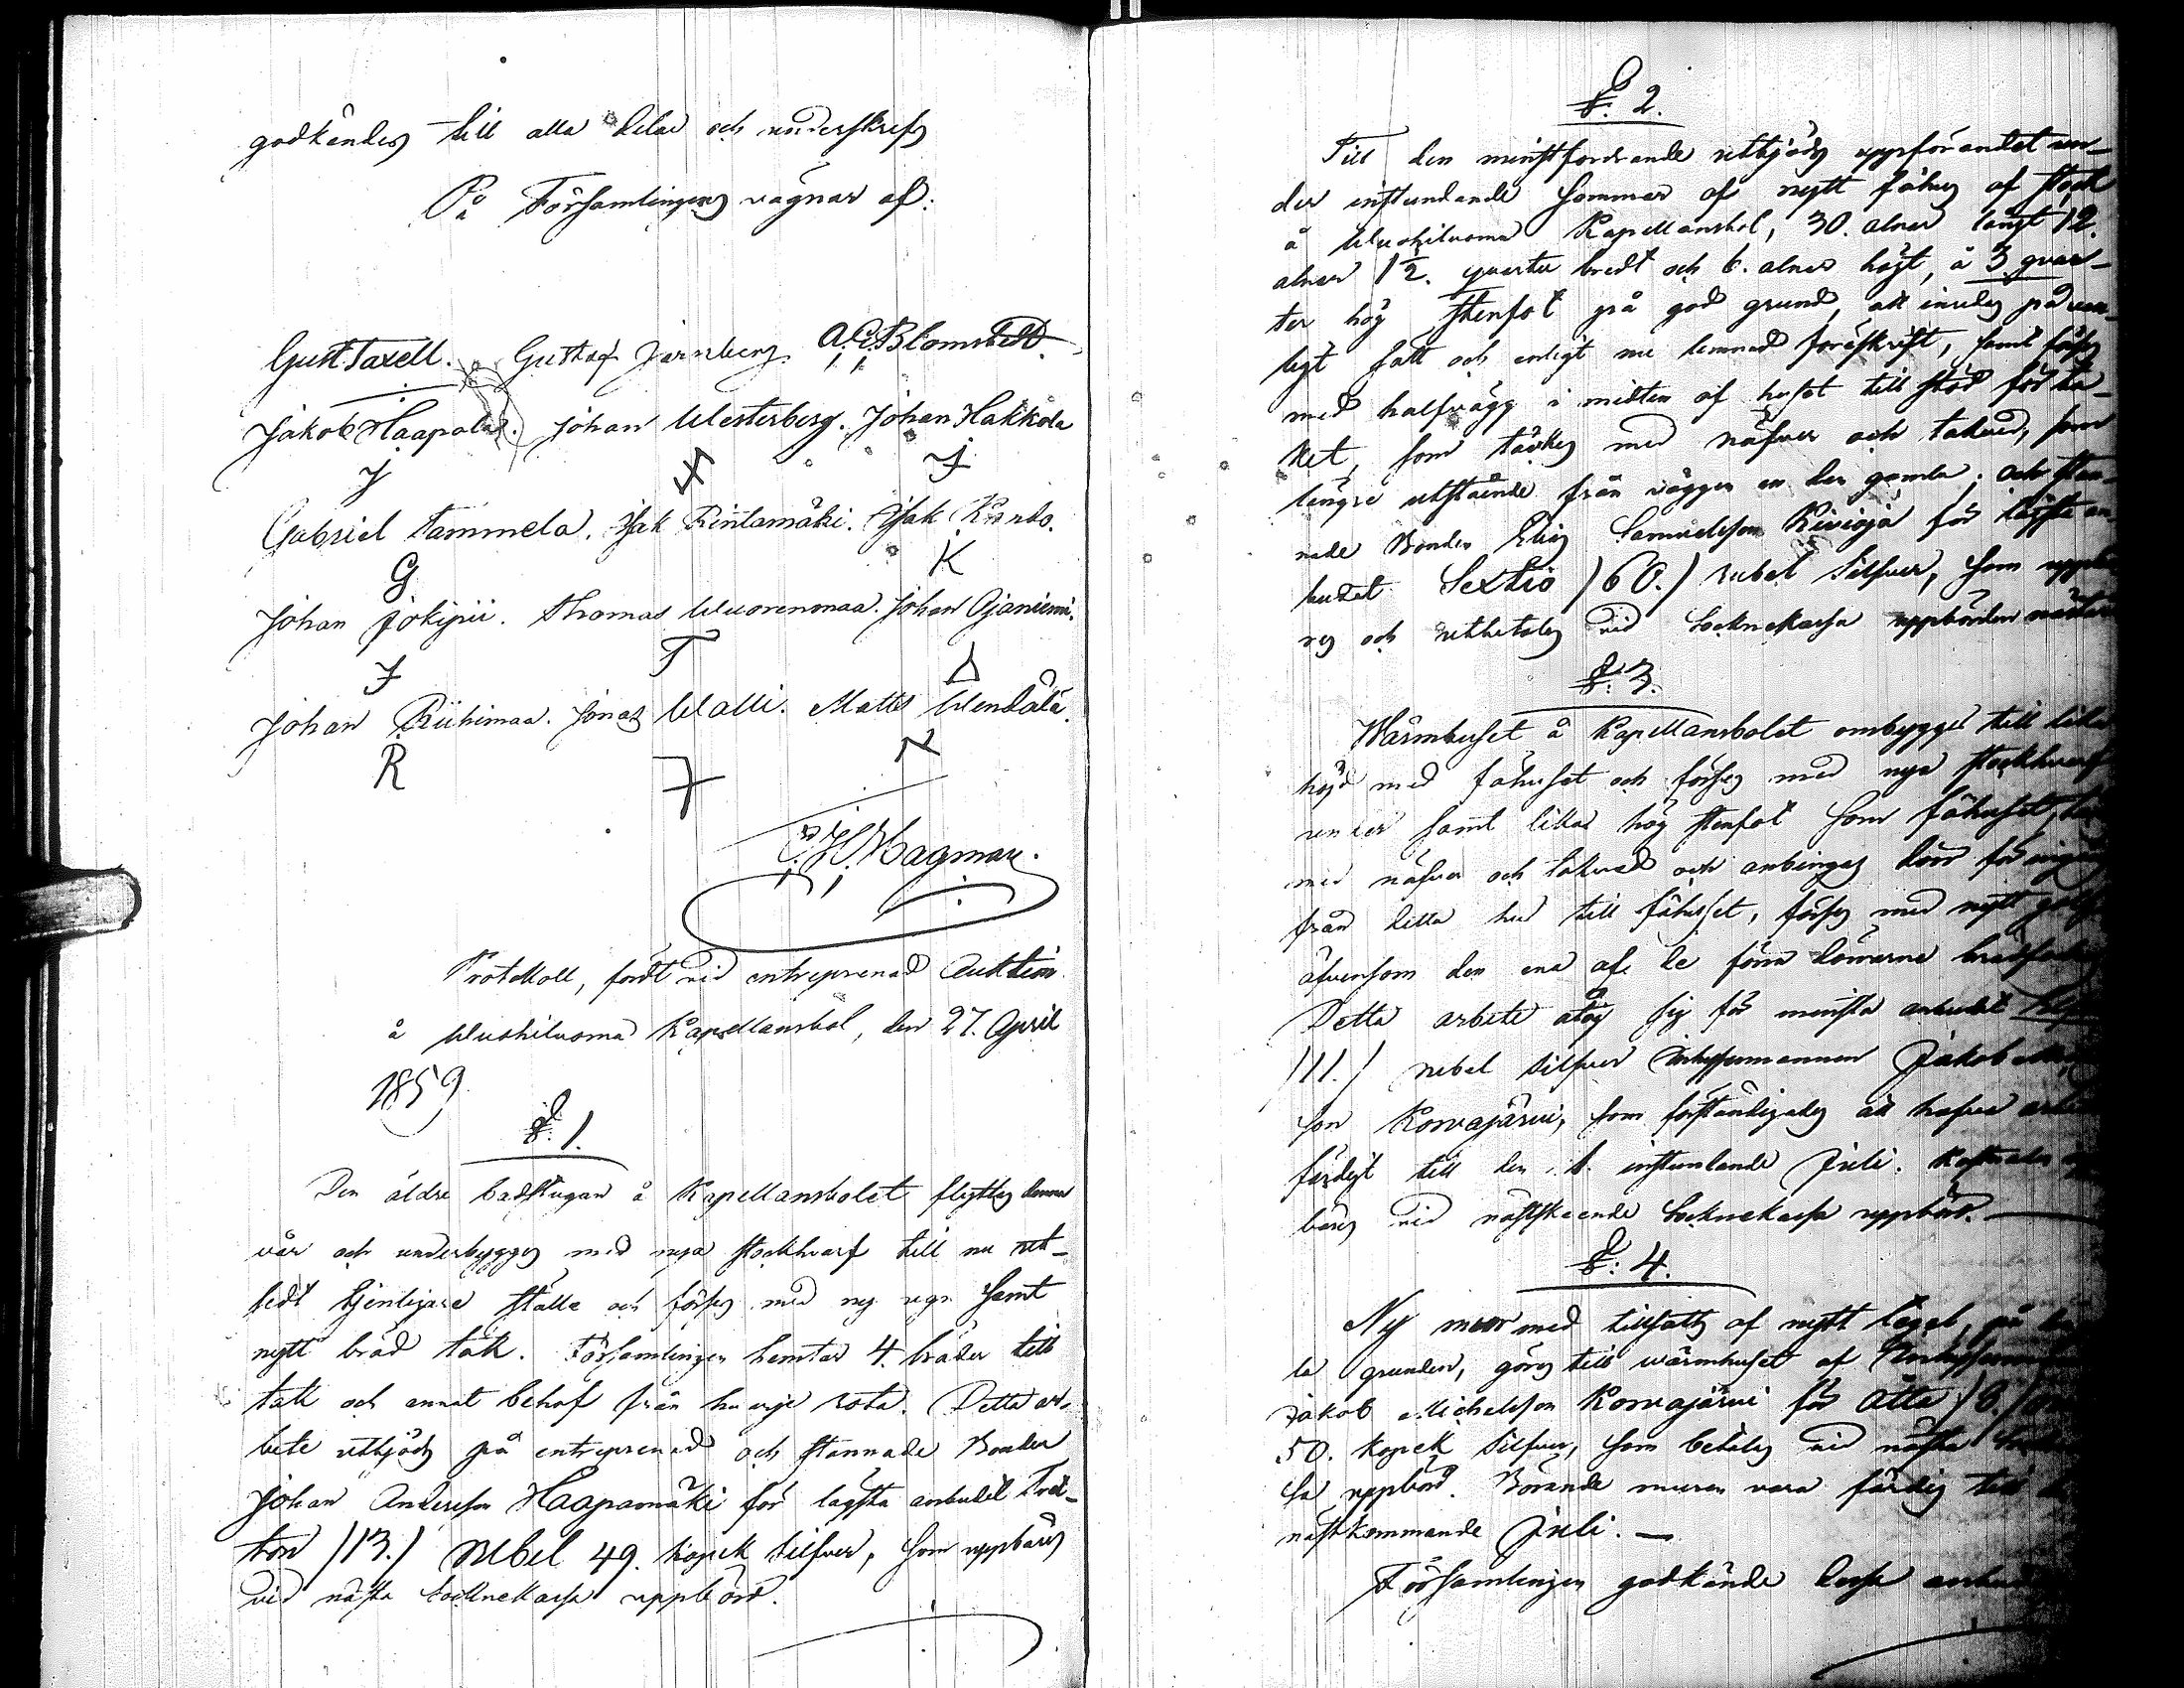 godkändes till alla delar och underskrefs
På Församlingens vägnar af:
Gust Taxell. Gustaf Jernberg. A. E. Blomstedt.
Jakob Haapala. Johan Westerberg. Johan Hakkola
J J
Gabriel Tammela. Isak Rintamäki. Isak
G K
Johan Jokipii. Thomas Wuorenmaa. Johan Ojaniemi.
J T
Johan Riihimaa. Jonas Walli. Matts Wendälä.
R
C. H. Hagman.
Protokoll, fördt vid entreprenad Auktion
å Wuohiluoma Kapellansbol, den 27. April
1859.
§. 1.
Den äldre badstugan å Kapellansbolet flyttas denna
vår och underbygges med nya stockhvarf till nu ut-
sedt tjenligare ställe och förses med ny ugn samt
nytt bräd tak. Församlingen hemtar 4. bräder till
tak och annat behof från hvarje rota. Detta ar-
bete utbjöds på entreprenad och stannade Bonden
Johan Andersson Haapamäki för lägsta anbudet Tret-
ton /13./ rubel 49. kopek silfver, som uppbäres
vid nästa Socknekassa uppbörd.
§. 2.
Till den minstfordrande utbjöds uppförandet un-
der instundande Sommar af nytt fähus af stock
å Wuohiluoma Kapellansbol, 30. alnar långt 12.
alnar 1½. qvarter bredt och 6. alnar högt, å 3 qvar-
ter hög stenfot på god grund, att inredas på van-
ligt sätt och enligt nu lemnad föreskrift, samt förses
med halfvägg i midten af huset till stöd för ta-
ket, som täckes med näfver och takved, som
längre utstående från väggen än den gamla; och stan-
nade Bonden Elias Samuelsson Kivioja för lägsta an-
budet Sextio /60./ rubel Silfver, som uppbä-
res och utbetalas vid Socknekassa uppbörden
§. 3.
Wärmhuset å Kapellansbolet ombygges till lika
höjd med fähuset och förses med nya stockhvarf
under samt lika hög stenfot som fähuset,
med näfver och takved och anbringas dörr för ingång
från detta hus till fähuset, förses med nytt golf
äfvensom den ena af de förra dörrarne
Detta arbete åtog sig för minsta anbudet
/11./ rubel silfver Inhysesmannen Jakob
son Korvajärvi, som förständigades att hafva
färdigt till den 1. instundande Juli. Kostnaden
bäres vid nästskeende Socknekassa uppbörd.
§. 4.
Ny mur med tillsats af nytt tegel, på
la grunden, göres till wärmhuset af Inhysesmannen
Jakob Michelsson Korvajärvi för Åtta /8./
50. kopek Silfver, som betalas vid nästa
sa uppbörd. Börande muren vara färdig till
nästkommande Juli.
Församlingen godkände dessa